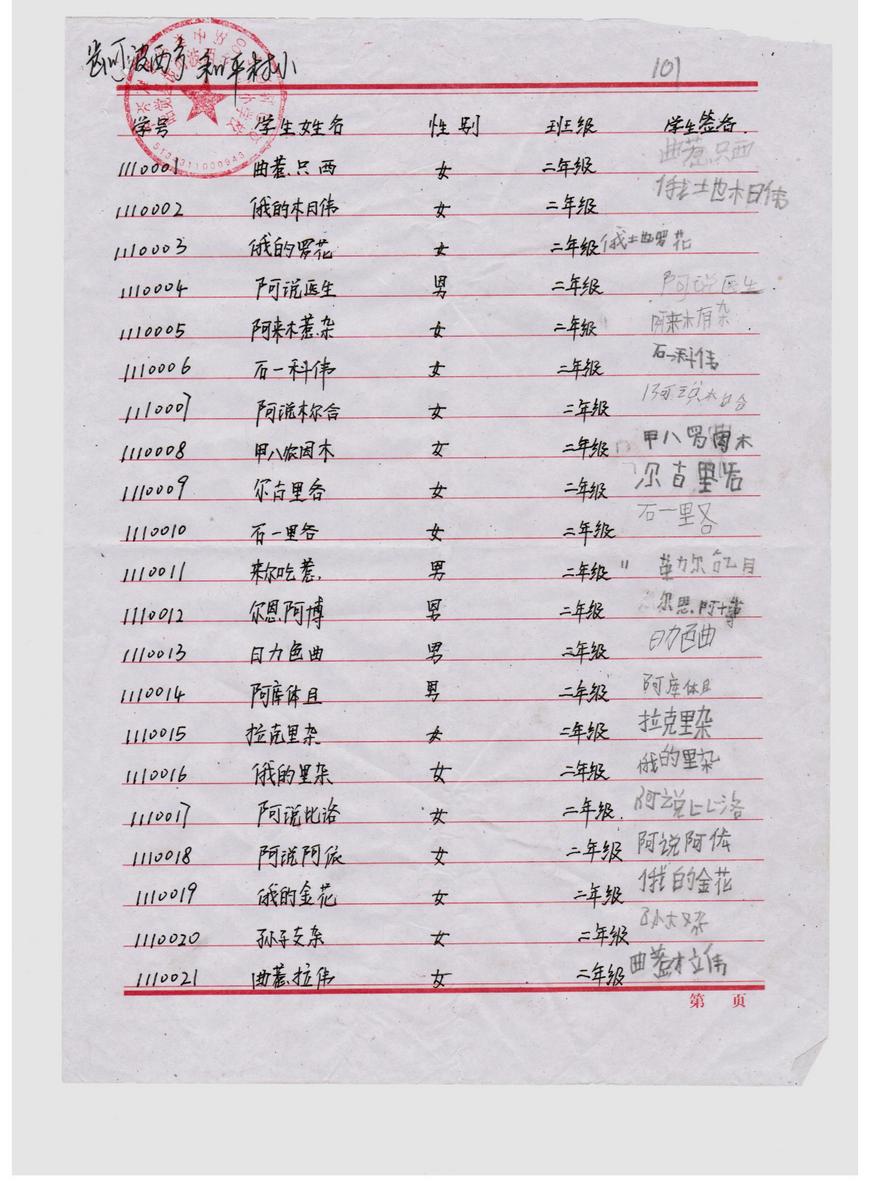 波西乡 和平村小
101
学号 学生姓名 性别 班级 学生签名
5134311000943
1110001 曲惹只西 女 二年级 曲惹只西
1110002 俄的木日伟 女 二年级 俄土地木日伟
1110003 俄的罗花 女 二年级 俄土地罗花
1110004 阿说医生 男 二年级 阿说医生
1110005 阿来木惹杂 女 二年级 阿来木有杂
1110006 石一科伟 女 二年级 石一科伟
1110007 阿说木尔合 女 二年级
1110008 甲八依因木 女 二年级 甲八罗因木
1110009 尔古里各 女 二年级 尔古里
1110010 石一里各 女 二年级 石一里各
1110011 来尔吃惹 男 二年级 "
1110012 尔恩阿博 男 二年级 尔恩阿
1110013 日力色曲 男 二年级 日力色曲
1110014 阿库体且 男 二年级 阿库体且
1110015 拉克里杂 女 二年级 拉克里杂
1110016 俄的里杂 女 二年级 俄的里杂
1110017 阿说比洛 女 二年级 阿说比洛
1110018 阿说阿依 女 二年级 阿说阿依
1110019 俄的金花 女 二年级 俄的金花
1110020 孙子支杂 女 二年级
1110021 曲惹拉伟 女 二年级 曲惹木立伟
第 页